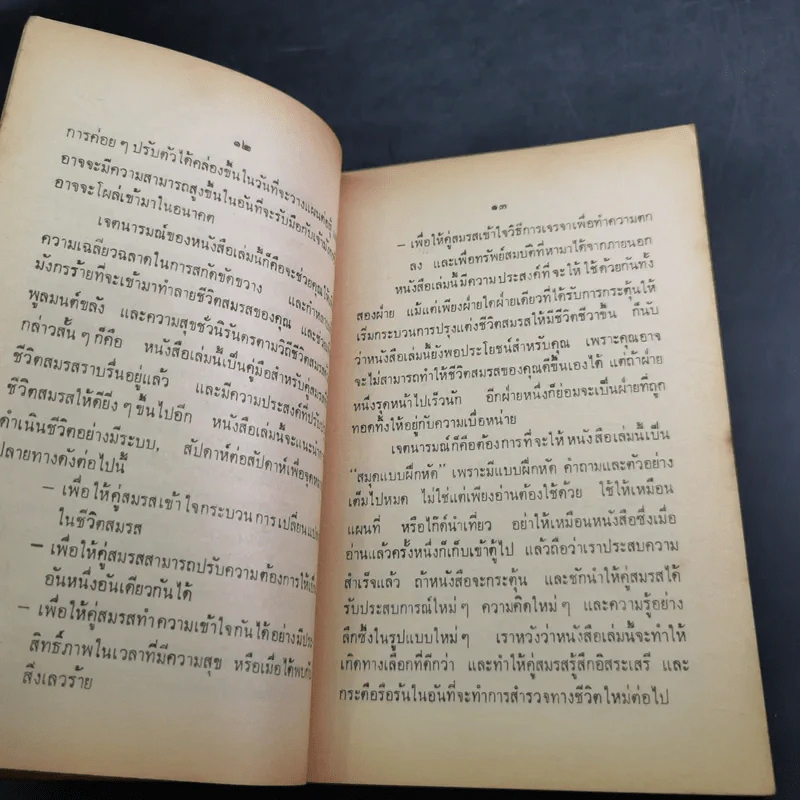 ๑๒
การค่อย ๆ ปรับตัวได้คล่องขึ้นในวันที่จะวางแผน
อาจจะมีความสามารถสูงขึ้นในอันที่จะรับมือกับ
อาจจะโผล่เข้ามาในอนาคต
เจตนารมณ์ของหนังสือเล่มนี้ก็คือจะช่วยคุณ
ความเฉลียวฉลาดในการสกัดขัดขวาง และ
มังกรร้ายที่จะเข้ามาทำลายชีวิตสมรสของคุณ และ
พูลมนต์ขลัง และความสุขชั่วนิรันดรตามวิถีชีวิตสมรส
กล่าวสั้น ๆ ก็คือ หนังสือเล่มนี้เป็นคู่มือสำหรับ
ชีวิตสมรสราบรื่นอยู่แล้ว และมีความประสงค์ที่
ชีวิตสมรสให้ดียิ่ง ๆ ขึ้นไปอีก หนังสือเล่มนี้จะแนะนำ
ดำเนินชีวิตอย่างมีระบบ, สัปดาห์ต่อสัปดาห์เพื่อ
ปลายทางดังต่อไปนี้
– เพื่อให้คู่สมรสเข้าใจกระบวนการเปลี่ยน
ในชีวิตสมรส
– เพื่อให้คู่สมรสสามารถปรับความต้องการให้
อันหนึ่งอันเดียวกันได้
– เพื่อให้คู่สมรสทำความเข้าใจกันได้อย่างมีประ
สิทธิ์ภาพในเวลาที่มีความสุข หรือเมื่อได้พบกับ
สิ่งเลวร้าย
๑๓
– เพื่อให้คู่สมรสเข้าใจวิธีการเจรจาเพื่อทำความตก
ลง และเพื่อทรัพย์สมบัติที่หามาได้จากภายนอก
หนังสือเล่มนี้มีความประสงค์ที่จะให้ใช้ด้วยกันทั้ง
สองฝ่าย แม้แต่เพียงฝ่ายใดฝ่ายเดียวที่ได้รับการกระตุ้นให้
เริ่มกระบวนการปรุงแต่งชีวิตสมรสให้มีชีวิตชีวาขึ้น ก็นับ
ว่าหนังสือเล่มนี้ยังพอประโยชน์สำหรับคุณ เพราะคุณอาจ
จะไม่สามารถทำให้ชีวิตสมรสของคุณดีขึ้นเองได้ แต่ถ้าฝ่าย
หนึ่งรุดหน้าไปเร็วนัก อีกฝ่ายหนึ่งก็ย่อมจะเป็นฝ่ายที่ถูก
ทอดทิ้งให้อยู่กับความเบื่อหน่าย
เจตนารมณ์ก็คือต้องการที่จะให้หนังสือเล่มนี้เป็น
“สมุดแบบฝึกหัด” เพราะมีแบบฝึกหัด คำถามและตัวอย่าง
เต็มไปหมด ไม่ใช่แต่เพียงอ่านต้องใช้ด้วย ใช้ให้เหมือน
แผนที่ หรือไก๊ด์นำเที่ยว อย่าให้เหมือนหนังสือซึ่งเมื่อ
อ่านแล้วครั้งหนึ่งก็เก็บเข้าตู้ไป แล้วถือว่าเราประสบความ
สำเร็จแล้ว ถ้าหนังสือจะกระตุ้น และชักนำให้คู่สมรสได้
รับประสบการณ์ใหม่ ๆ ความคิดใหม่ ๆ และความรู้อย่าง
ลึกซึ้งในรูปแบบใหม่ ๆ เราหวังว่าหนังสือเล่มนี้จะทำให้
เกิดทางเลือกที่ดีกว่า และทำให้คู่สมรสรู้สึกอิสระเสรี และ
กระตือรือรันในอันที่จะทำการสำรวจทางชีวิตใหม่ต่อไป